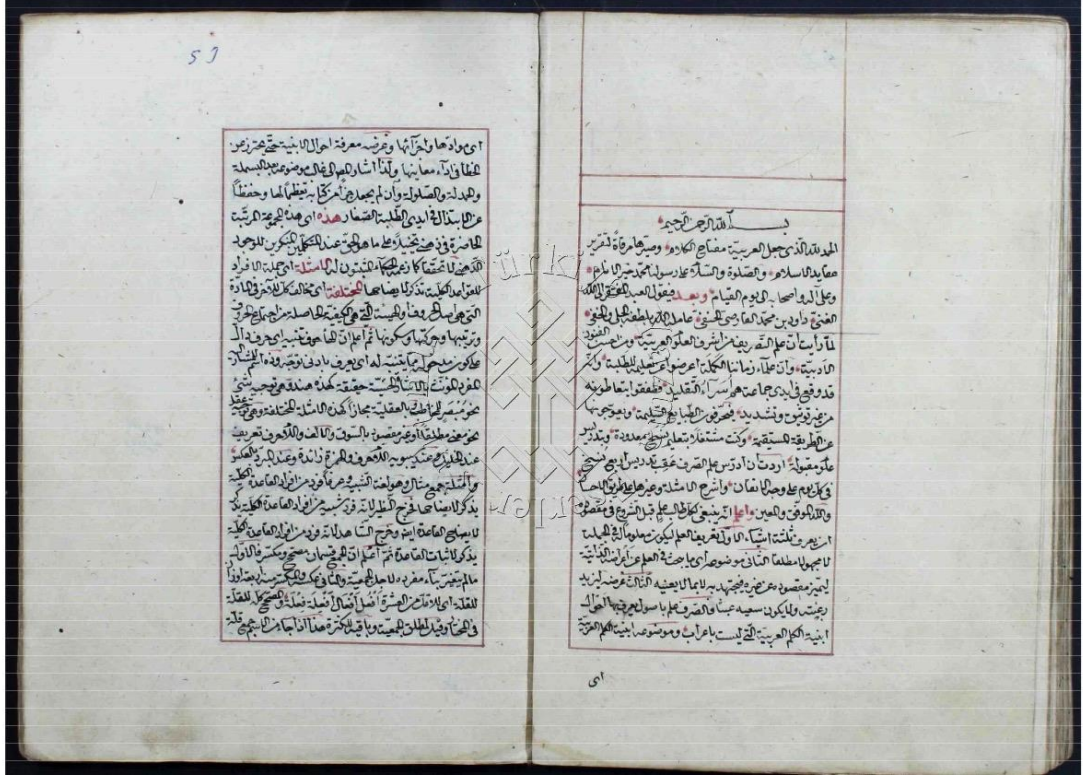 بسم الله الرحمن الرحيم
الحمد لله الذى جعل العربية مفتاح الكلام وصيرها مرقاة لتقرير
عقايد الاسلام والصلوة والسلام على رسوله محمد خير الانام
وعلى آله واصحابه الى يوم القيام وبعد فيقول العبد المفتقر الى الله
الغنى داود بن محمد القارصى الحنفى عامله الله بلطفه الجلى والخفى
لما رأيت ان علم التصريف من اشرف العلوم العربية ومن احسن الفنون
الادبية وان علماء زماننا الكملة اعرضوا عن تعليمه للطلبة وكا
قد وقع فى ايدى جماعة هم اسراء التقليد فطفقوا يتعاطونه
من غير توثيق وتشديد فيحرفون الطبايع السليمة ويعوجونها
عن الطريقة المستقيمة وكنت مشتغلا بتعليم نسخ معدودة وبتدريس
علوم مقبولة اردت ان ادرس علم الصرف عقيب تدريس اربع نسخ
فى كل يوم على وجه الاتقان واشرح الامثلة وغيرها على طريق الاحسان
والله الموفق والمعين واعلم انه ينبغى لكل طالب علم قبل الشروع فى مقصوده
ان يعرف ثلثة اشياء الاول تعريف العلم ليكون معلوما فى الجملة
لا مجهولا مطلقا الثانى موضوعه اى ما يبحث فى العلم عن اعراضه الذاتية
ليتميز مقصوده عن غيره فيجتهد لا بما لا يعنيه الثالث غرضه ليزيد
رغبته ولا يكون سعيه عبثا والصرف علم باصول يعرف بها احوال
ابنية الكلم العربية التى ليست باعراب وموضوعه ابنية الكلم العربية
اى
اى موادها واجزائها وغرضه معرفة احوال الابنية حتى يحترز عن
الخطأ فى اداء معانيها ولذا اشار المص الى موضوعه بعد البسملة
والحمدلة والصلولة وان لم يجعلا جزأ من كتابه تعظيما لها وحفظا
عن الابتذال فى ايدى الطلبة الصغار هذه اى هذه المجموعة المرتبة
الحاضرة فى ذهنى تخيلا على ما هو الحق عند المتكلمين المنكرين للوجود
الذهنى لا تحققا كما زعم الحكماء المثبتون له الامثلة اى جملة الافراد
للقواعد الكلية تذكر لايضاحها المختلفة اى مخالف كل للآخر فى المادة
التى هى اصل الحروف او الهيئة التى هى الكيفية الحاصلة من اجتماع الحروف
وترتيبها وحركتها وسكونها ثم اعلم ان الهاء حرف تنبيه اى حرف دال
على كون مدخوله مما يتنبه له اى يعرف بادنى توجه وذه اسم
المفرد المؤنث بالاشارة الحسية حقيقة كهذه هند وهى توجيه شئ
نحو مبصر المخاطب والعقلية مجازا كهذه الامثلة المختلفة وهى توجيه عقل
نحو معنى مطلقا او غير مبصر بالسوق والالف واللام حرف تعريف
عند الخليل وعند سيبويه اللام حرف والهمزة زائدة وعند المبرد بالعكس
والامثلة جمع مثال وهو لغة الشبيه وعرفا فرد من افراد القاعدة الكلية
يذكر لايضاحها فخرج النظير لانه فرد شبيه من افراد القاعدة الكلية يذكر
لايضاح القاعدة ايضا وخرج الشاهد لانه فرد من افراد القاعدة الكلية
يذكر لاثبات القاعدة ثم اعلم ان الجمع قسمان مصحح ومكسر فالاول
ما لم يتغير بناء مفرده لاجل الجمعية والثانى عكسه والمكسر اربعة اوزان
للقلة اى للاقل من العشرة افعل افعال افعلة فعلة والمصحح كله للقلة
فى المختار وقيل لمطلق الجمعية وباقيه للكثرة هذا اذا جاء من الاسم جمع قلة